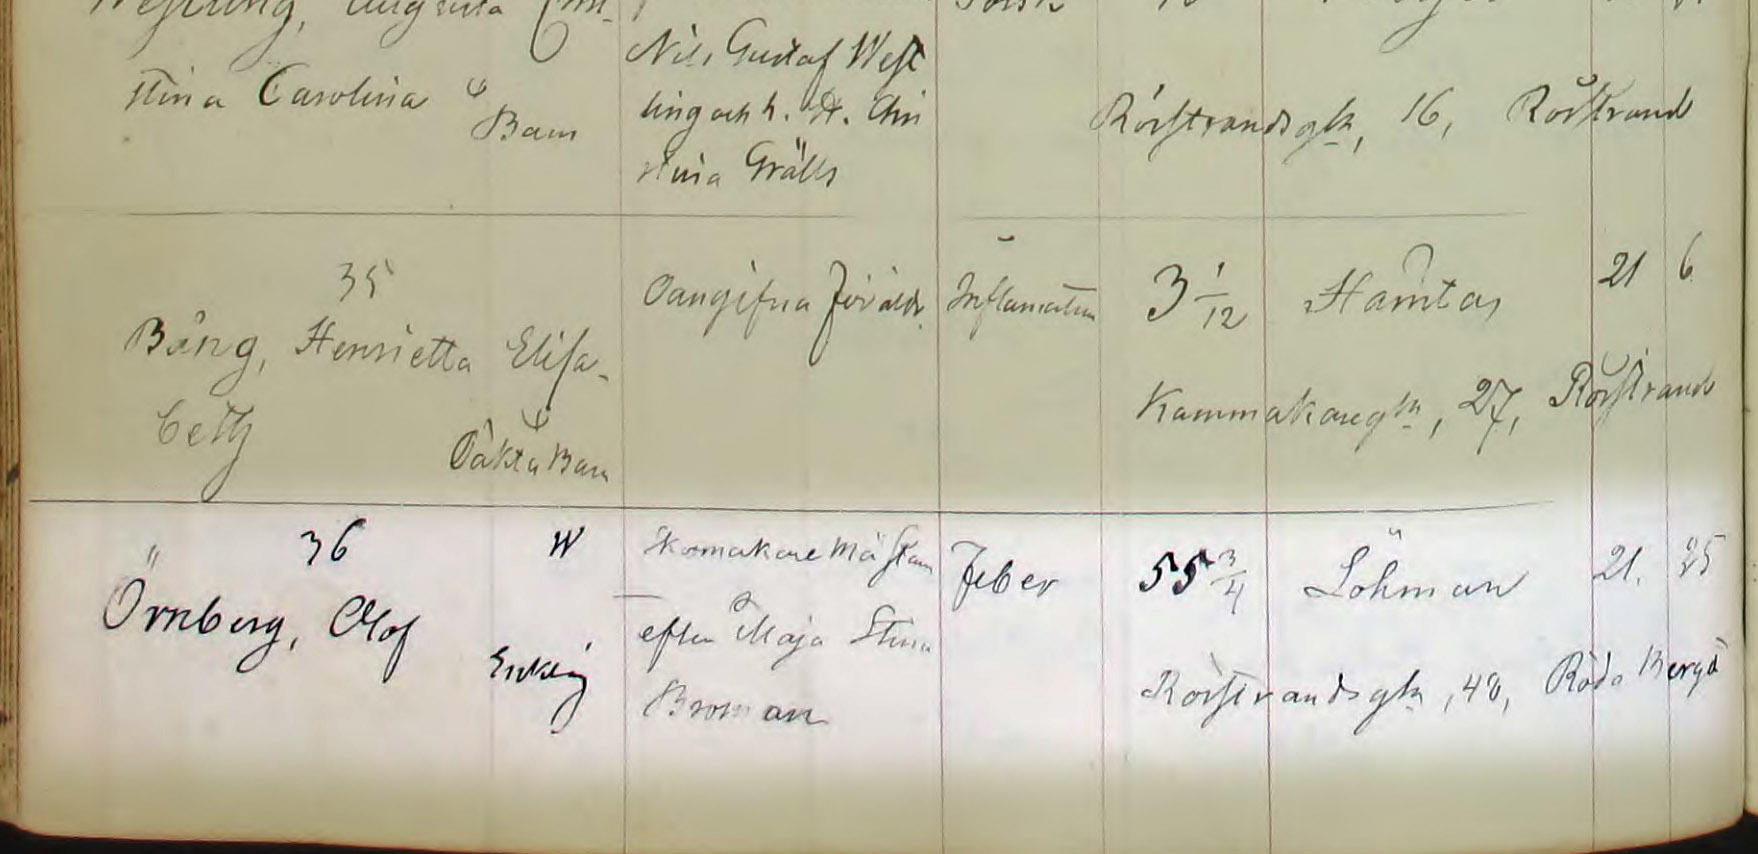 Westling, Augusta Chri-
stina Carolina
Barn
Nils Gustaf West
ling och h. H. Chri
stina Grälls
Rörstrandsgtn, 16, Rörstrand
35
Bång, Henrietta Elisa-
beth
Oäkta Barn
Oangifna föräldr.
Inflamation
3 1/12
Hämtas
21 6
Kammakaregtn, 27, Rörstrand
36
Örnberg, Olof
W
Enkling
Skomakare Mästare
efter Maja Stina
Broman
Feber
55 3/4
Löhman
21. 25
Rörstrandsgtn, 48, Röda Bergä